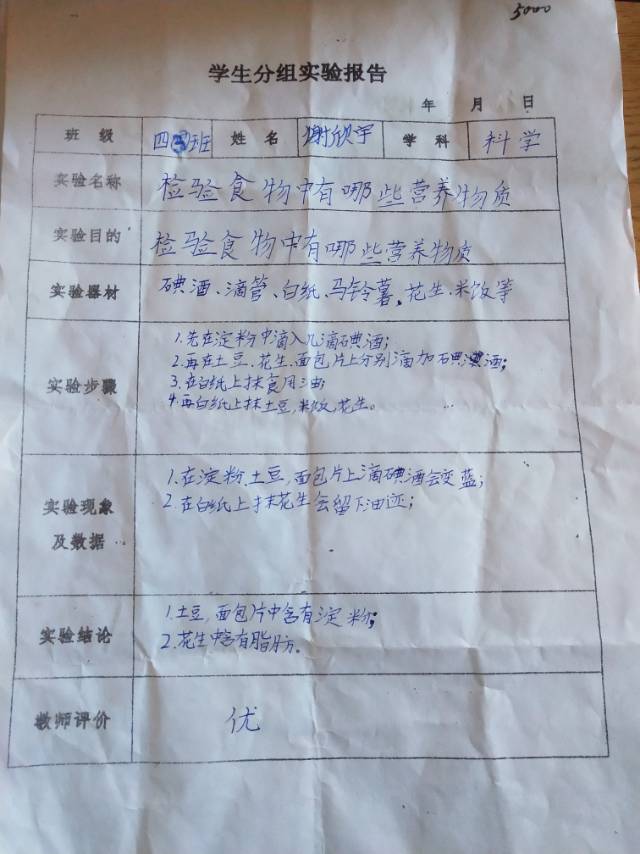 5000
学生分组实验报告
年 月 日
班 级 四 班 姓 名 谢欣宇 学 科 科学
实验名称 检验食物中有哪些营养物质
实验目的 检验食物中有哪些营养物质
实验器材 碘酒、滴管、白纸、马铃薯、花生、米饭等
实验步骤
1.先在淀粉中滴入几滴碘酒;
2.再在土豆、花生、面包片上分别滴加碘酒;
3.在白纸上抹食用油;
4.再白纸上抹土豆,米饭,花生。
实验现象
及数据
1.在淀粉,土豆,面包片上滴碘酒会变蓝;
2.在白纸上抹花生会留下油迹;
实验结论
1.土豆,面包片中含有淀粉;
2.花生中含有脂肪。
教师评价 优